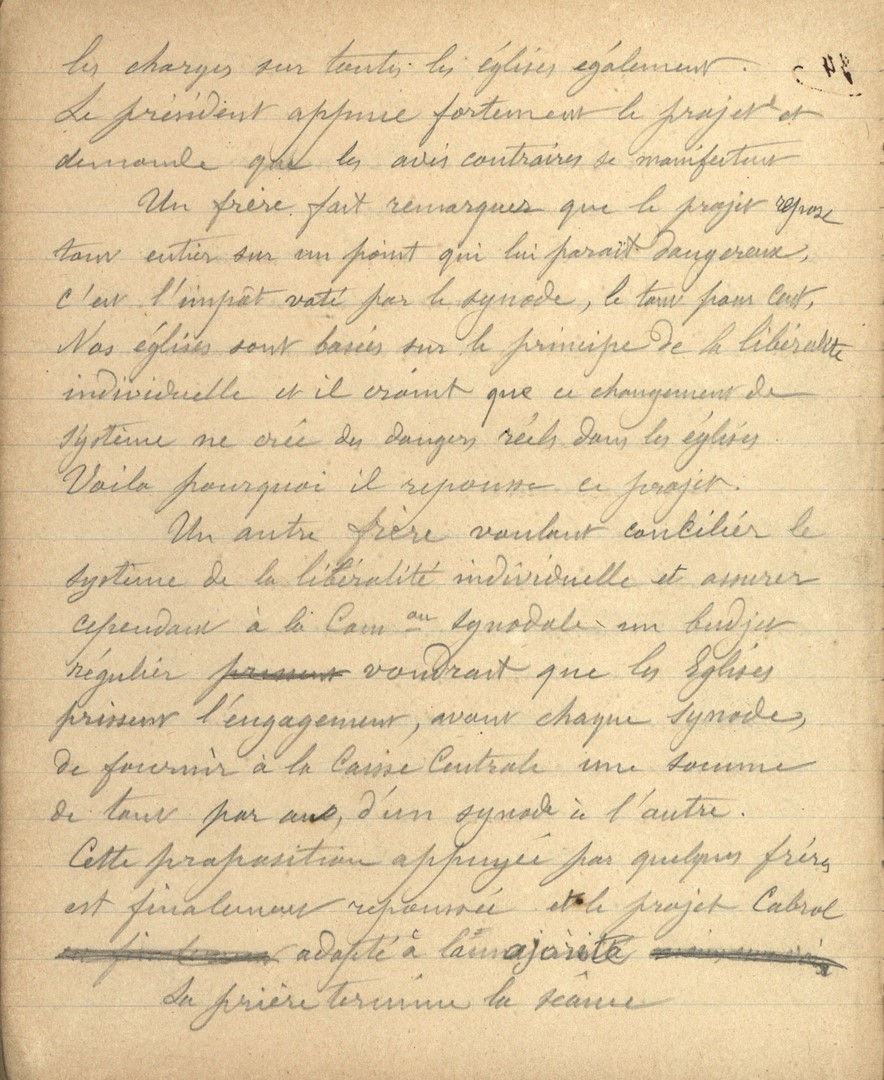 les charges sur toutes les églises également.
Le président appuie fortement le projet et
demande que les avis contraires se manifestent
Un frère fait remarquer que le projet repose
tout entier sur un point qui lui paraît dangereux,
c'est l'impôt voté par le synode, le tant pour cent,
Nos églises sont basées sur le principe de la libéralité
individuelle et il craint que ce changement de
système ne crée des dangers réels dans les églises
Voila pourquoi il repousse ce projet.
Un autre frère voulant conciliér le
système de la libéralité individuelle et assurer
cependant à la Com on synodale un budjet
régulier voudrait que les Eglises
prissent l'engagement, avant chaque synode,
de fournir à la Caisse Centrale une somme
de tant par an, d'un synode à l'autre.
Cette proposition appuyée par quelques frères
est finalement repoussée et le projet Cabrol
adopté à la majorité
La prière termine la séance